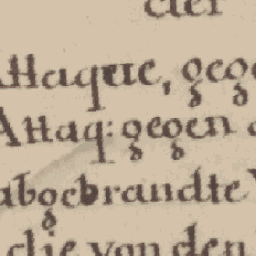 der
Attaque, gege
Attaq: gegen
abgebrandte
die von den